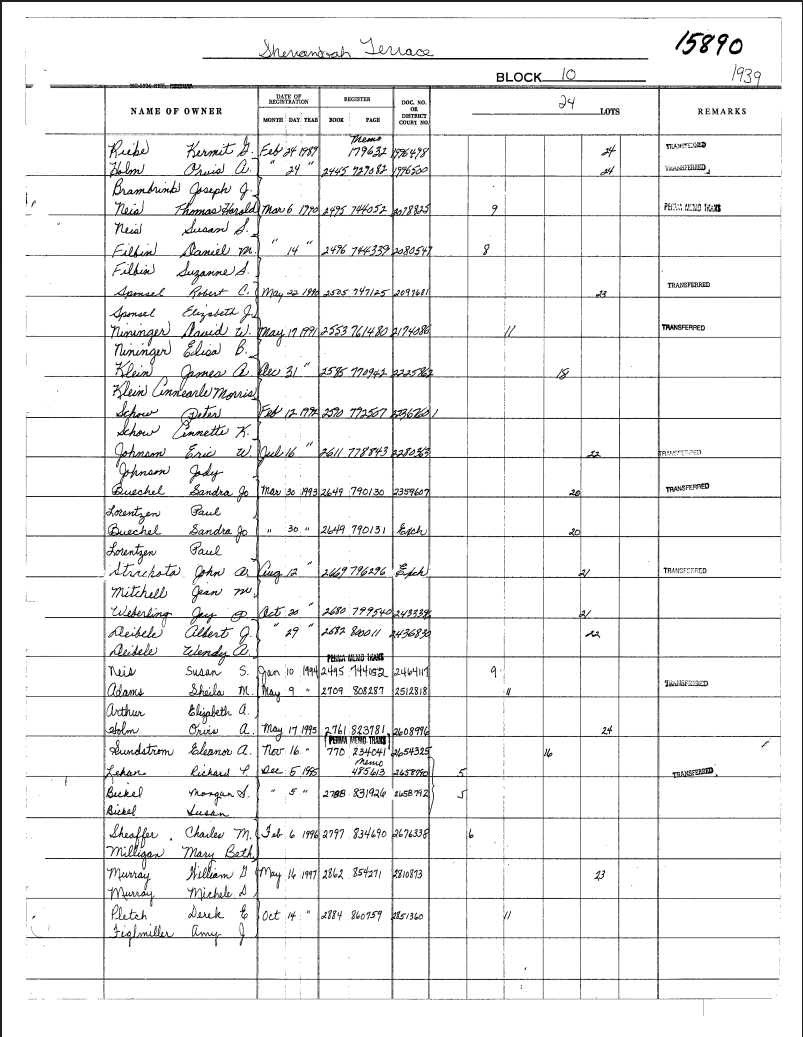 Shenandoah Terrace
15890
BLOCK 10
1939
NAME OF OWNER
DATE OF REGISTRATION
MONTH DAY YEAR
REGISTER
BOOK PAGE
DOC. NO. OR DISTRICT COURT NO.
24 LOTS
REMARKS
Memo
Kermit G. Feb 24 1989 179632 1996498 24 TRANSFERRED
Holm Orvis A. " 24 " 2445 727082 1996500 24 TRANSFERRED
Brambrink Joseph J.
Neis Thomas Harold Mar 6 1990 2495 744052 2078825 9 PERMA MEMO TRANS
Neis Susan S.
Filbin Daniel M. " 14 " 2496 744339 2080547 8
Filbin Suzanne S.
Sponsel Robert C. May 22 1990 2505 747125 2097681 23 TRANSFERRED
Sponsel Elizabeth J.
Nininger David W. May 17 1991 2553 761480 2174086 11 TRANSFERRED
Nininger Elisa B.
Klein James A. Dec 31 " 2585 770942 18
Klein Annearle Morris
Schow Peter Feb 12 1992 2590 772507
Schow Annette K.
Johnson Eric W. Jul 16 " 2611 778843 2280363 22 TRANSFERRED
Johnson Jody
Buechel Sandra Jo Mar 30 1993 2649 790130 2359607 20 TRANSFERRED
Lorentzen Paul
Buechel Sandra Jo " 30 " 2649 790131 Exch 20
Lorentzen Paul
Strachota John A. Aug 12 " 2669 796296 Exch 21 TRANSFERRED
Mitchell Jean M.
Weberling Jay Oct 20 " 2680 799540 21
Deibele Albert J. " 29 " 2682 800011 2436830 22
Deibele Wendy A.
PERMA MEMO TRANS
Neis Susan S. Jan 10 1994 2495 744052 2464117 9
Adams Sheila M. May 9 " 2709 808287 2512818 11 TRANSFERRED
Arthur Elizabeth A.
Holm Orvis A. May 17 1995 2761 823781 2608996 24
PERMA MEMO TRANS
Sundstrom Eleanor A. Nov 16 " 770 234041 2654325 16
Memo
Lekan Richard Dec 5 1995 485613 2658790 5 TRANSFERRED
Bickel Morgan S. " 5 " 2788 831926 2658792 5
Bickel Susan
Sheaffer Charles M. Feb 6 1996 2797 834690 2676338 6
Milligan Mary Beth
Murray William G May 16 1997 2862 854271 2810873 23
Murray Michele D
Pletch Derek E Oct 14 " 2884 860759 2851360 11
Figlmiller Amy J